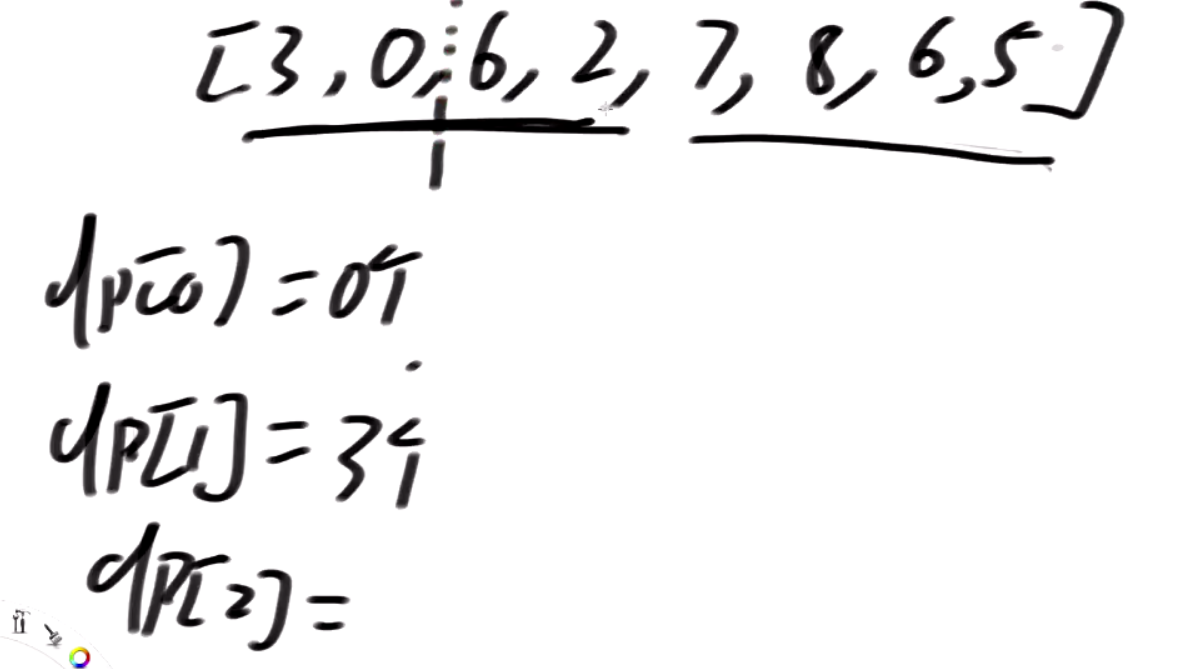 [3, 0, 6, 2, 7, 8, 6, 5]
dp[0] = 0个
dp[1] = 3个
dp[2] =